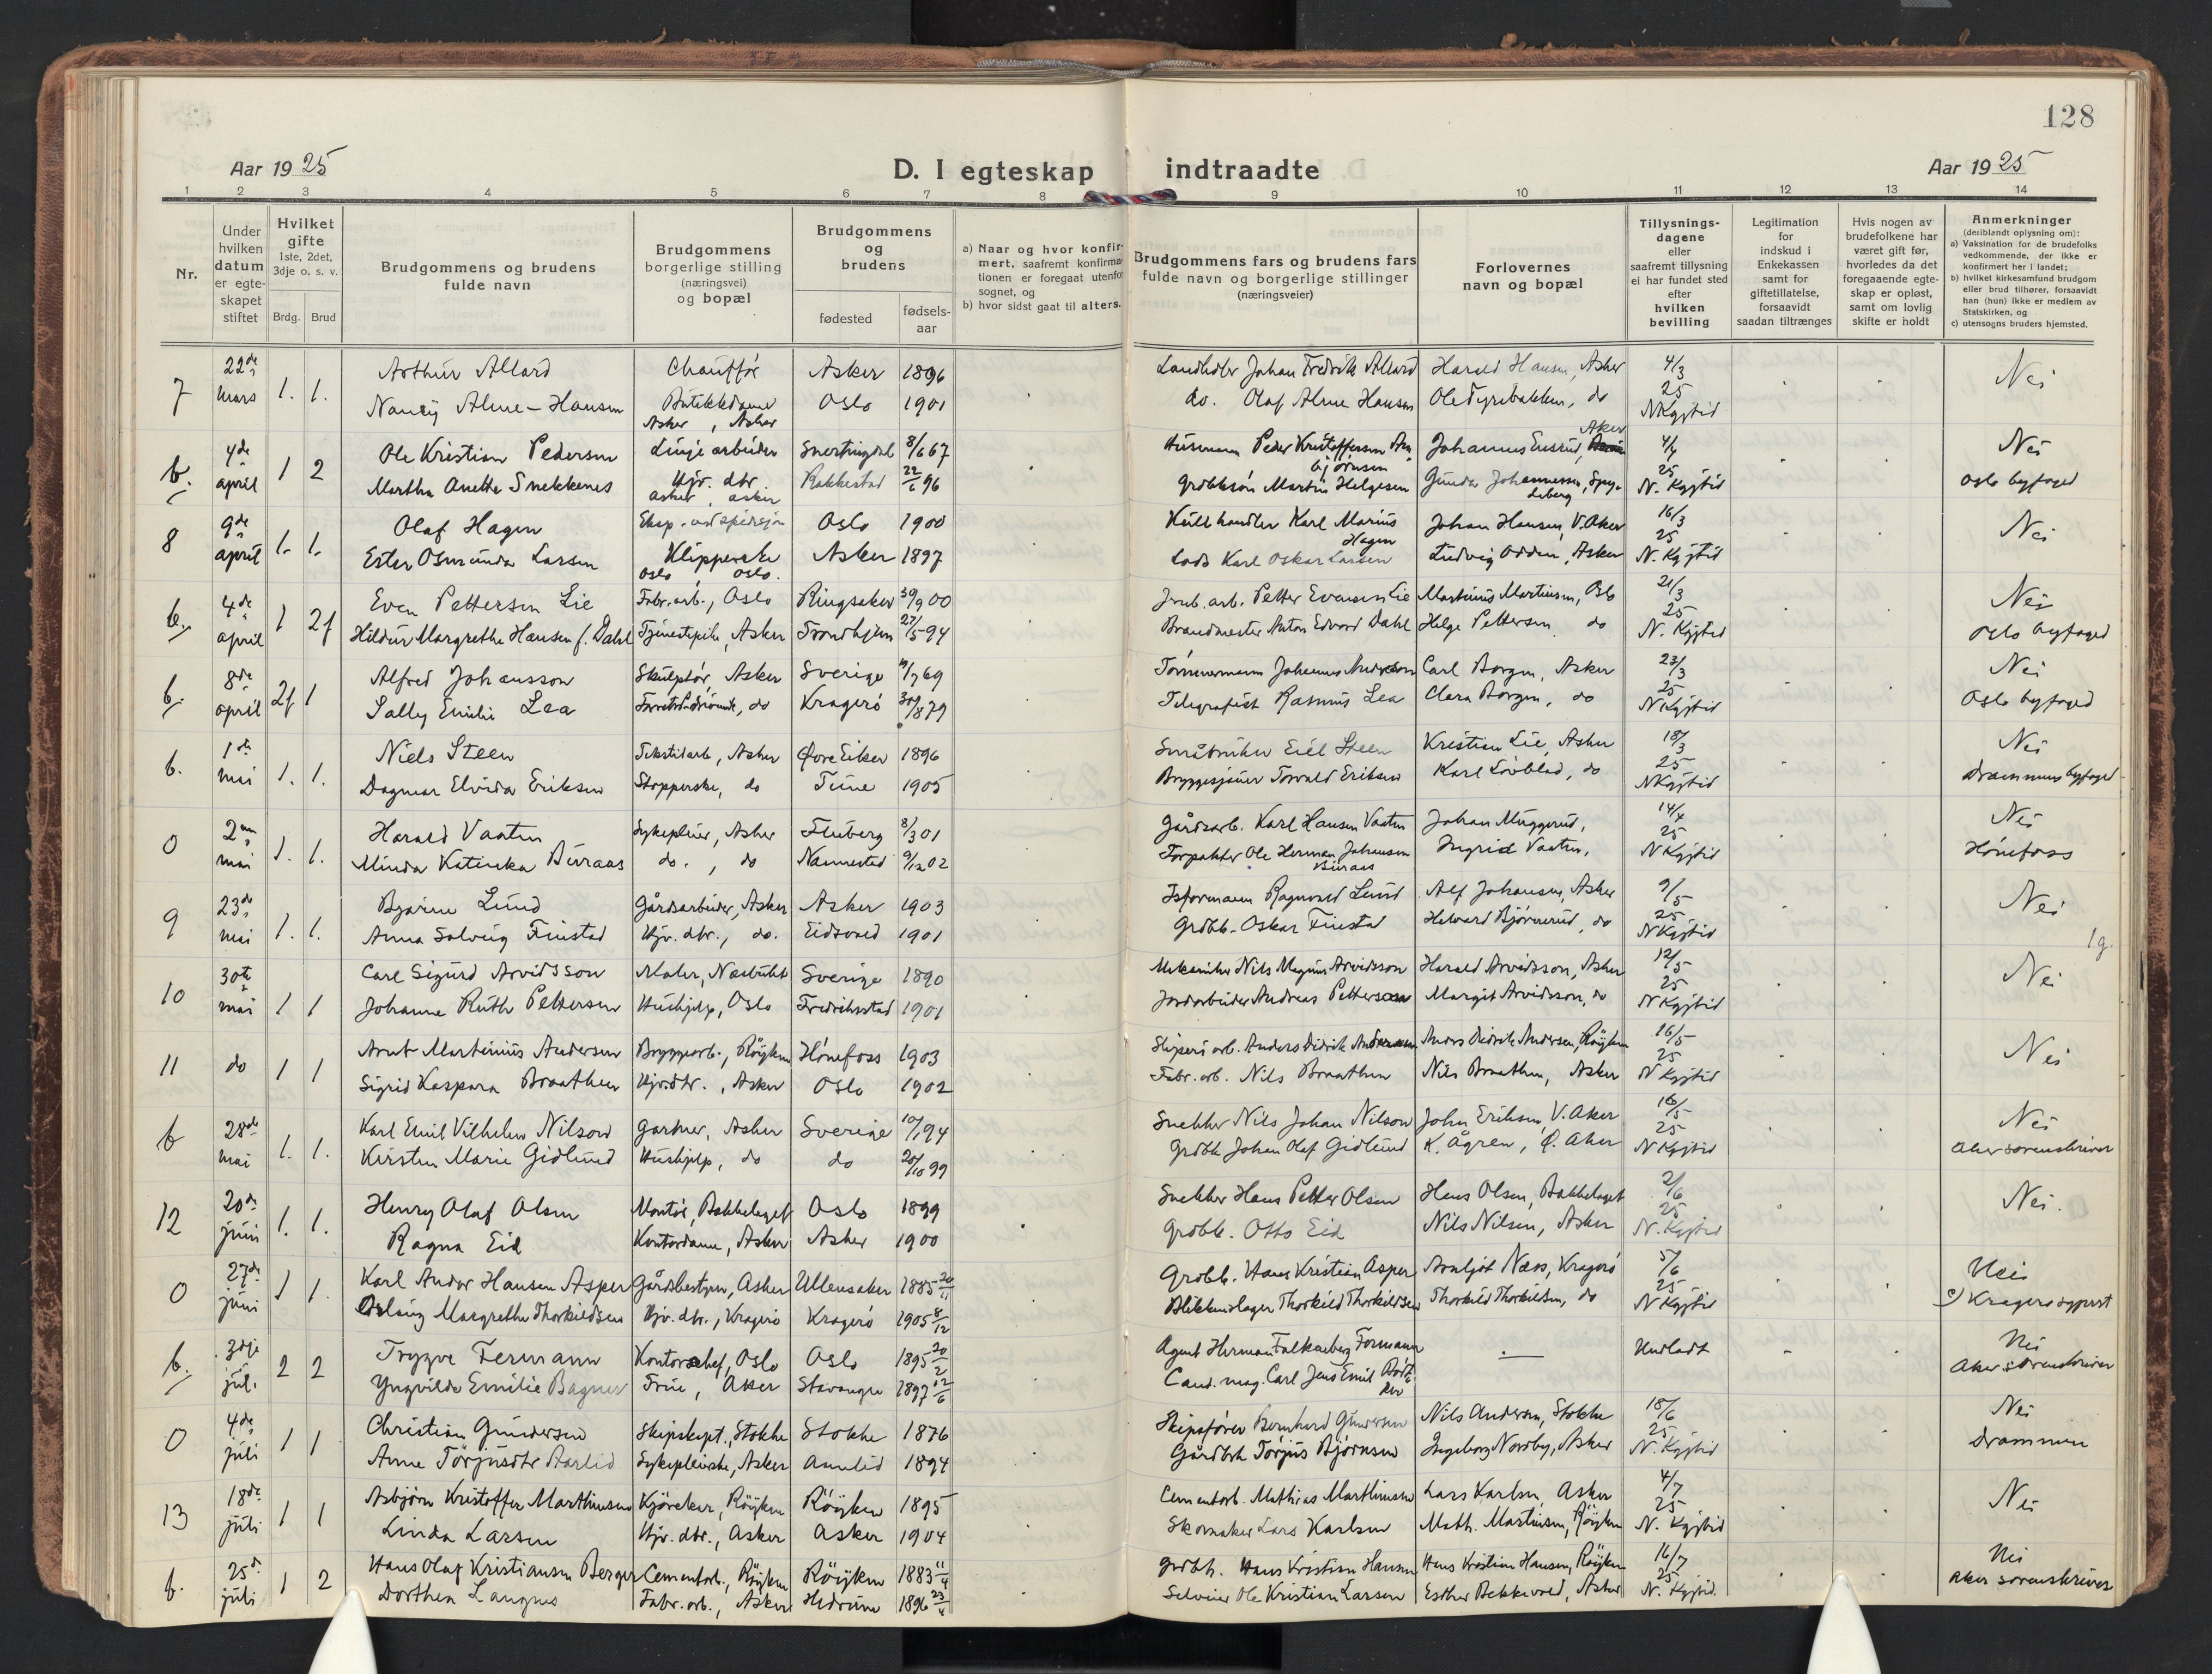 128
Aar 1925
D. I egteskap
indtraadte
Aar 1925
1 2 3 4 5 6 7 8 9 10 11 12 13 14
Nr.
Under hvilken datum er egte-skapet stiftet
Hvilket gifte 1ste, 2det, 3dje o. s. v.
Brdg. Brud
Brudgommens og brudens fulde navn
Brudgommens borgerlige stilling (næringsvei) og bopæl
Brudgommens og brudens
fødested
fødsels-aar
a) Naar og hvor konfir-mert, saafremt konfirma-tionen er foregaat utenfor sognet, og
b) hvor sidst gaat til alters.
Brudgommens fars og brudens fars fulde navn og borgerlige stillinger (næringsveier)
Forlovernes navn og bopæl
Tillysnings-dagene eller saafremt tillysning ei har fundet sted efter hvilken bevilling
Legitimation for indskud i Enkekassen samt for giftetillatelse, forsaavidt saadan tiltrænges
Hvis nogen av brudefolkene har været gift før, hvorledes da det foregaaende egte-skap er opløst, samt om lovlig skifte er holdt
Anmerkninger (deriblandt oplysning om):
a) Vaksination for de brudefolks vedkommende, der ikke er konfirmert her i landet;
b) hvilket kirkesamfund brudgom eller brud tilhører, forsaavidt han (hun) ikke er medlem av Statskirken, og
c) utensogns bruders hjemsted.
7 22de mars 1. 1. Arthur Allard Chauffør Asker 1896 Landhdler Johan Fredrik Allard Harald Hansen, Asker 4/3 25 Nei
Nancy Alme-Hansen Butikkdame Oslo 1901 do. Olaf Alme Hansen Ole Tyribakken, do N Kgjtid
Asker, Asker
b. 4de april 1 2 Ole Kristian Pedersen Linje arbeider Snertingdal 8/6 67 Husmann Peder Kristoffersen Johannes Ensrud, Aker 4/4 25 Nei
Martha Anette Snekkenes Hjv. dtr. Rakkestad 22/6 96 Grdbksøn Martin Helgesen Gunda Johannessen, Spydeberg N. Kgjtid Oslo byfoged
asker asker
8 9de april 1. 1. Olaf Hagen Oslo 1900 Kullhandler Karl Marius Hagen Johan Hansen, V. Aker 16/3 25 Nei
Ester Osmunda Larsen Klipperske Asker 1897 Lods Karl Oskar Larsen Ludvig Odden, Asker N. Kgjtid
Oslo Oslo.
b. 4de april 1 2f Even Pettersen Lie Fabr.arb., Oslo Ringsaker 30/9 00 Jernb. arb. Petter Evensen Lie Martinius Martinsen, Oslo 21/3 25 Nei
Hildur Margrethe Hansen f. Dahl Tjenestepike, Asker Trondhjem 27/5 94 Brandmester Anton Edvard Dahl Helge Pettersen do N. Kgjtid Oslo byfoged
b. 8de april 2f 1 Alfred Johansson Skulptør, Asker Sverige 69 Tømmermann Johannes Andersson Carl Borgen, Asker 23/3 25 Nei
Sally Emilie Lea do Kragerø 30/8 79 Telegrafist Rasmus Lea Clara Borgen, do N Kgjtid Oslo byfoged
b. 1ste mai 1. 1. Niels Steen Tekstilarb., Asker Øvre Eiker 1896 Småbruker Eiel Steen Kristian Lie, Asker 18/3 25 Nei
Dagmar Elvida Eriksen Stopperske, do Tune 1905 Bryggesjauer Torvald Eriksen Karl Lövblad, do N Kgjtid Drammens byfoged
0 2nn mai 1. 1. Harald Vaaten Sykepleier, Asker Fluberg 8/3 01 Gårdsarb. Karl Hansen Vaaten Johan Muggerud, 14/4 25 Nei
Minda Katinka Buraas do., do Nannestad 9/12 02 Forpakter Ole Herman Johansen Buraas Ingrid Vaaten, N Kgjtid Hönefoss
9 23de mai 1. 1. Bjarne Lund Gårdsarbeider, Asker Asker 1903 Isformann Ragnvald Lund Alf Johansen, Asker 9/5 25 Nei
Anna Solveig Finstad Hjv. dtr., do. Eidsvold 1901 Grdbk. Oskar Finstad Halvard Bjørnerud, do N Kgjtid 1g.
10 30te mai 1 1 Carl Sigurd Arvidsson Maler, Næsbukt Sverige 1890 Mekaniker Nils Magnus Arvidsson Harald Arvidsson, Asker 12/5 25 Nei
Johanne Ruth Pettersen Hushjelp, Oslo Fredrikstad 1901 Jordarbeider Andreas Petterson Margit Arvidsson, do N Kgjtid
11 do 1 1 Arnt Martinius Andersen Bryggearb., Röyken Hönefoss 1903 Sliperi arb. Anders Didrik Andersen Anders Didrik Andersen, Röyken 16/5 25 Nei
Sigrid Kaspara Braathen Hjvdtr., Asker Oslo 1902 Fabr. arb. Nils Braathen Nils Braathen, Asker N Kgjtid
b 28de mai 1. 1. Karl Emil Vilhelm Nilson Gartner, Asker Sverige 94 Snekker Nils Johan Nilson John Eriksen, V. Aker 16/5 25 Nei
Kirsten Marie Gidlund Hushjelp, do do 20/10 99 Grdbk Johan Olof Gidlund K. Ågren, Ø. Aker N Kgjtid Aker sorenskriver
12 20de juni 1. 1. Henry Olaf Olsen Montør, Bekkelaget Oslo 1899 Snekker Hans Petter Olsen Hans Olsen, Bekkelaget 2/6 25 Nei.
Ragna Eid Kontordame, Asker Asker 1900 Grdbk. Otto Eid Nils Nilsen, Asker N. Kgjtid
0 27de juni 1 1. Karl Andor Hansen Asper Gårdbestyrer, Asker Ullensaker 1885 20/11 Grdbk. Hans Kristian Asper Arnljot Næss, Kragerö 5/6 25 Nei
Aslaug Margrethe Thorkildsen Hjv. dtr., Kragerö Kragerö 1905 8/12 Blikkenslager Thorkild Thorkildsen Thorkild Thorkildsen, do N Kgjtid c) Kragerö
b. 3dje juli 2 2 Trygve Fermann Kontorchef, Oslo Oslo 1895 20/2 Agent Herman Falkenberg Formann — Undladt - Nei
Yngvilda Emilie Bagner Frue, Aker Stavanger 1897 12/6 Cand. mag. Carl Jens Emil Aker sorenskriver
0 4de juli 1 1 Christian Gundersen Skipskapt., Stokke Stokke 1876 Skipsfører Bernhard Gundersen Nils Andersen, Stokke 18/6 25 Nei
Anne Törjusdtr Aarlid Sykepleierske, Asker Åmlid 1894 Gårdbrk Törjus Björnsen Ingeborg Nordby, Asker N. Kgjtid Drammen
13 18de juli 1 1 Asbjörn Kristoffer Marthinsen Kjörekar, Röyken Röyken 1895 Cementarb. Mathias Marthinsen Lars Karlsen Asker 4/7 25 Nei
Linda Larsen Hjv. dtr., Asker Asker 1904 Skomaker Lars Karlsen Math. Martinsen, Röyken N. Kgjtid
b. 25de juli 1 2 Hans Olaf Kristiansen Berger Cementarb., Röyken Röyken 1883 11/4 Grdbk. Hans Kristian Hansen Hans Kristian Hansen, Röyken 16/7 25 Nei
Dorthea Langnes Fabr. arb., Asker Hedrum 1896 23/4 Seleier Ole Kristian Larsen Esther Bekkevold, Asker N. Kgjtid. Aker sorenskriver